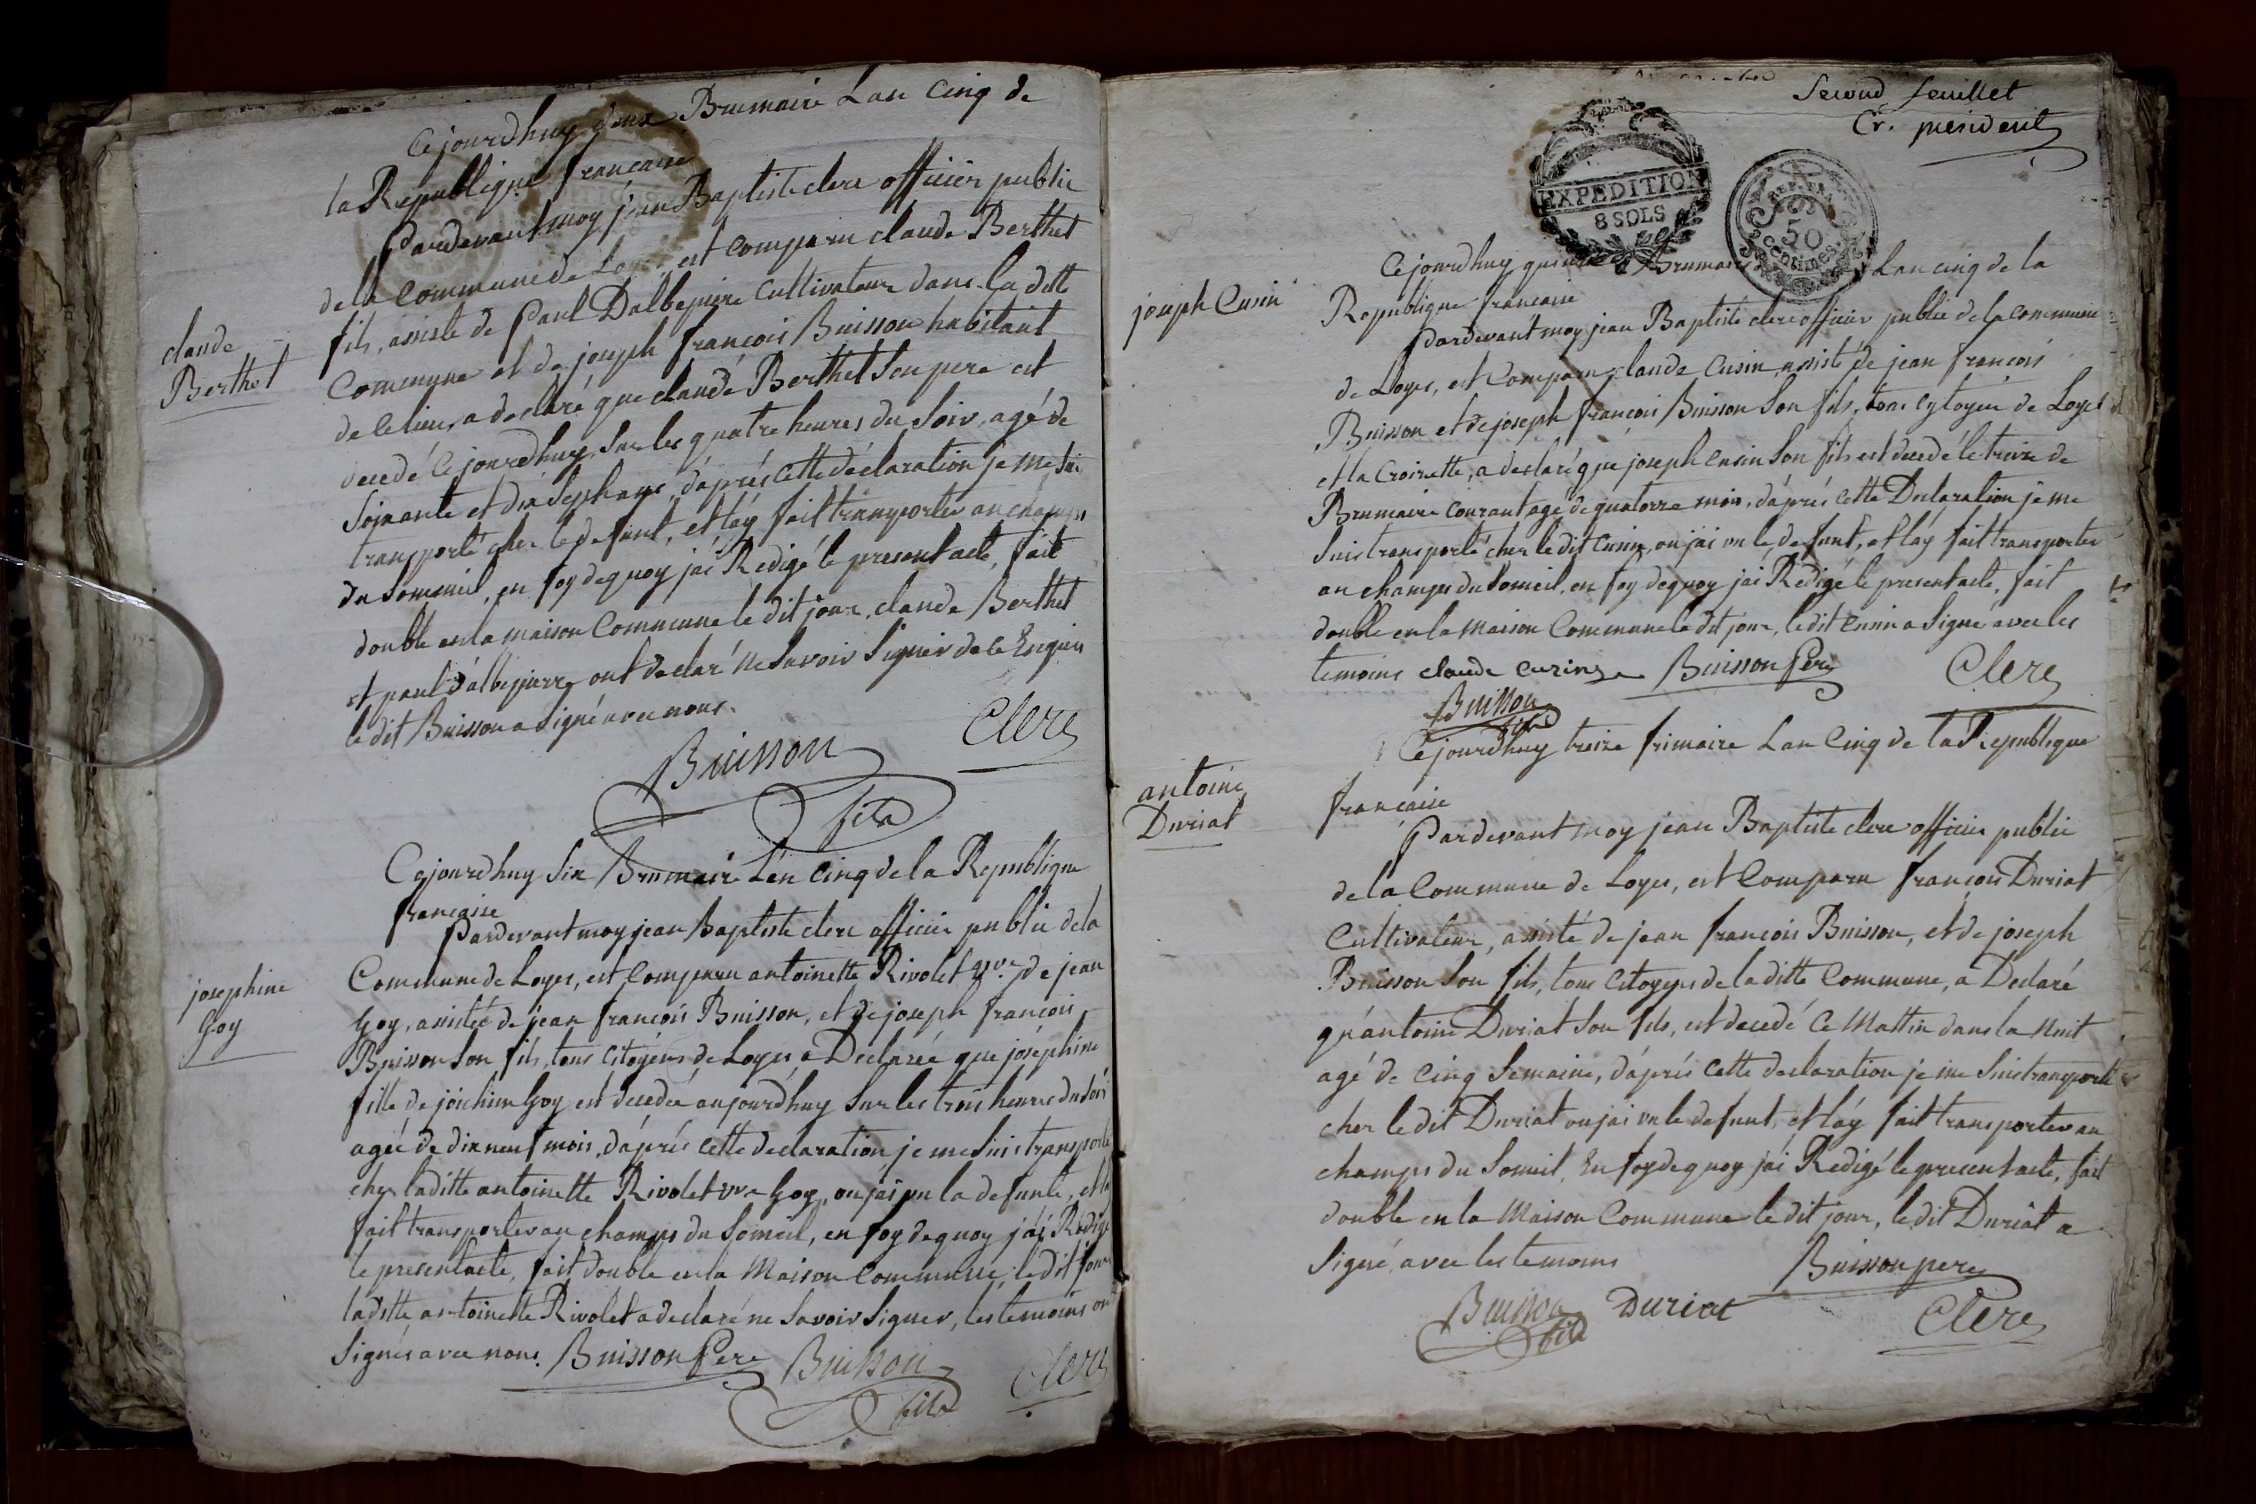 Cejourdhuy deux Brumaire Lan Cinq de
la Republique francaise
Pardevant moy jean Baptiste clerc officier public
de la Commune de Loyes, est comparu claude Berthet
fils, assisté de Paul Dalbepierre Cultivateur dans la ditte
Commune et de joseph francois Buisson habitant
de ce lieu, a declaré que claude Berthet son pere est
decedé Ce jourdhuy sur les quatre heures du soir, agé de
soixante et dix sept ans, d'après cette déclaration je me suis
transporté cher le defunt, et l'ay fait transporter au champs
du sommeil, en foy dequoy jai Redigé le present acte, fait
double en la maison Commune le dit jour, claude Berthet
et paul d'albepierre ont declaré ne savoir signer de ce Enquis
le dit Buisson a signé avec nous.
Buisson
fils
Clerc
claude
Berthet
Cejourdhuy six Brumaire L'en cinq de la Republique
francaise
Pardevant moy jean Baptiste clerc officier public de la
Commune de Loyes, est comparu antoinette Rivolet vve de jean
Goy, assistée de jean francois Buisson, et de joseph francois
Buisson son fils, tous citoyens de Loyes a Declarée que josephine
fille de joichim Goy est decedée aujourdhuy sur les trois heures du soir
agée de dix neuf mois, d'après cette declaration je me suis transporté
cher laditte antoinette Rivolet vve Goy, ou jai vu la defunte, et l'a
fait transporter au champs du someil, en foy dequoy j'ai Redigé
le present acte, fait double en la Maison Commune le dit jour
laditte antoinette Rivolet a declaré ne savoir signer, les temoins ont
signés avec nous. Buisson Pere Buisson
fils
Clerc
josephine
Goy
Second feuillet
Cr. president
EXPEDITION
8 SOLS
REP. FRA
50
centimes
Cejourdhuy quinze Brumaire Lan cinq de la
Republique francaise
Pardevant moy jean Baptiste clerc officier public de la commune
de Loyes, est comparu claude Cusin, assisté de jean francois
Buisson et de joseph francois Buisson son fils, tous cytoyen de Loyes
et la Croisette, a declaré que joseph Cusin son fils est decedé le treize de
Brumaire courant agé de quatorze mois, d'après cette Declaration je me
suis transporté cher le dit Cusin, ou jai vu le defunt, et l'ay fait transporter
au champs du someil, en foy dequoy jai Redigé le present acte, fait
double en la Maison Commune le dit jour, le dit Cusin a signé avec les
temoins claude cuzin Buisson Pere Clerc
Buisson
fils
joseph Cusin
Cejourdhuy treize frimaire Lan Cinq de la Republique
francaise
Pardevant moy jean Baptiste clerc officier public
de la Commune de Loyes, est comparu francois Duriat
Cultivateur, assisté de jean francois Buisson, et de joseph
Buisson son fils, tous citoyens de la ditte Commune, a Declaré
qu'antoine Duriat son fils, est decedé Ce Mattin dans la Nuit
agé de cinq semaine, d'après cette declaration je me suis transporté
cher le dit Duriat ou jai vu le defunt, et l'ay fait transporter au
champs du someil, En foy dequoy jai Redigé le present acte, fait
double en la Maison Commune le dit jour, le dit Duriat a
signé, avec les temoins Buisson pere
Buisson Duriat Clerc
fils
antoine
Duriat